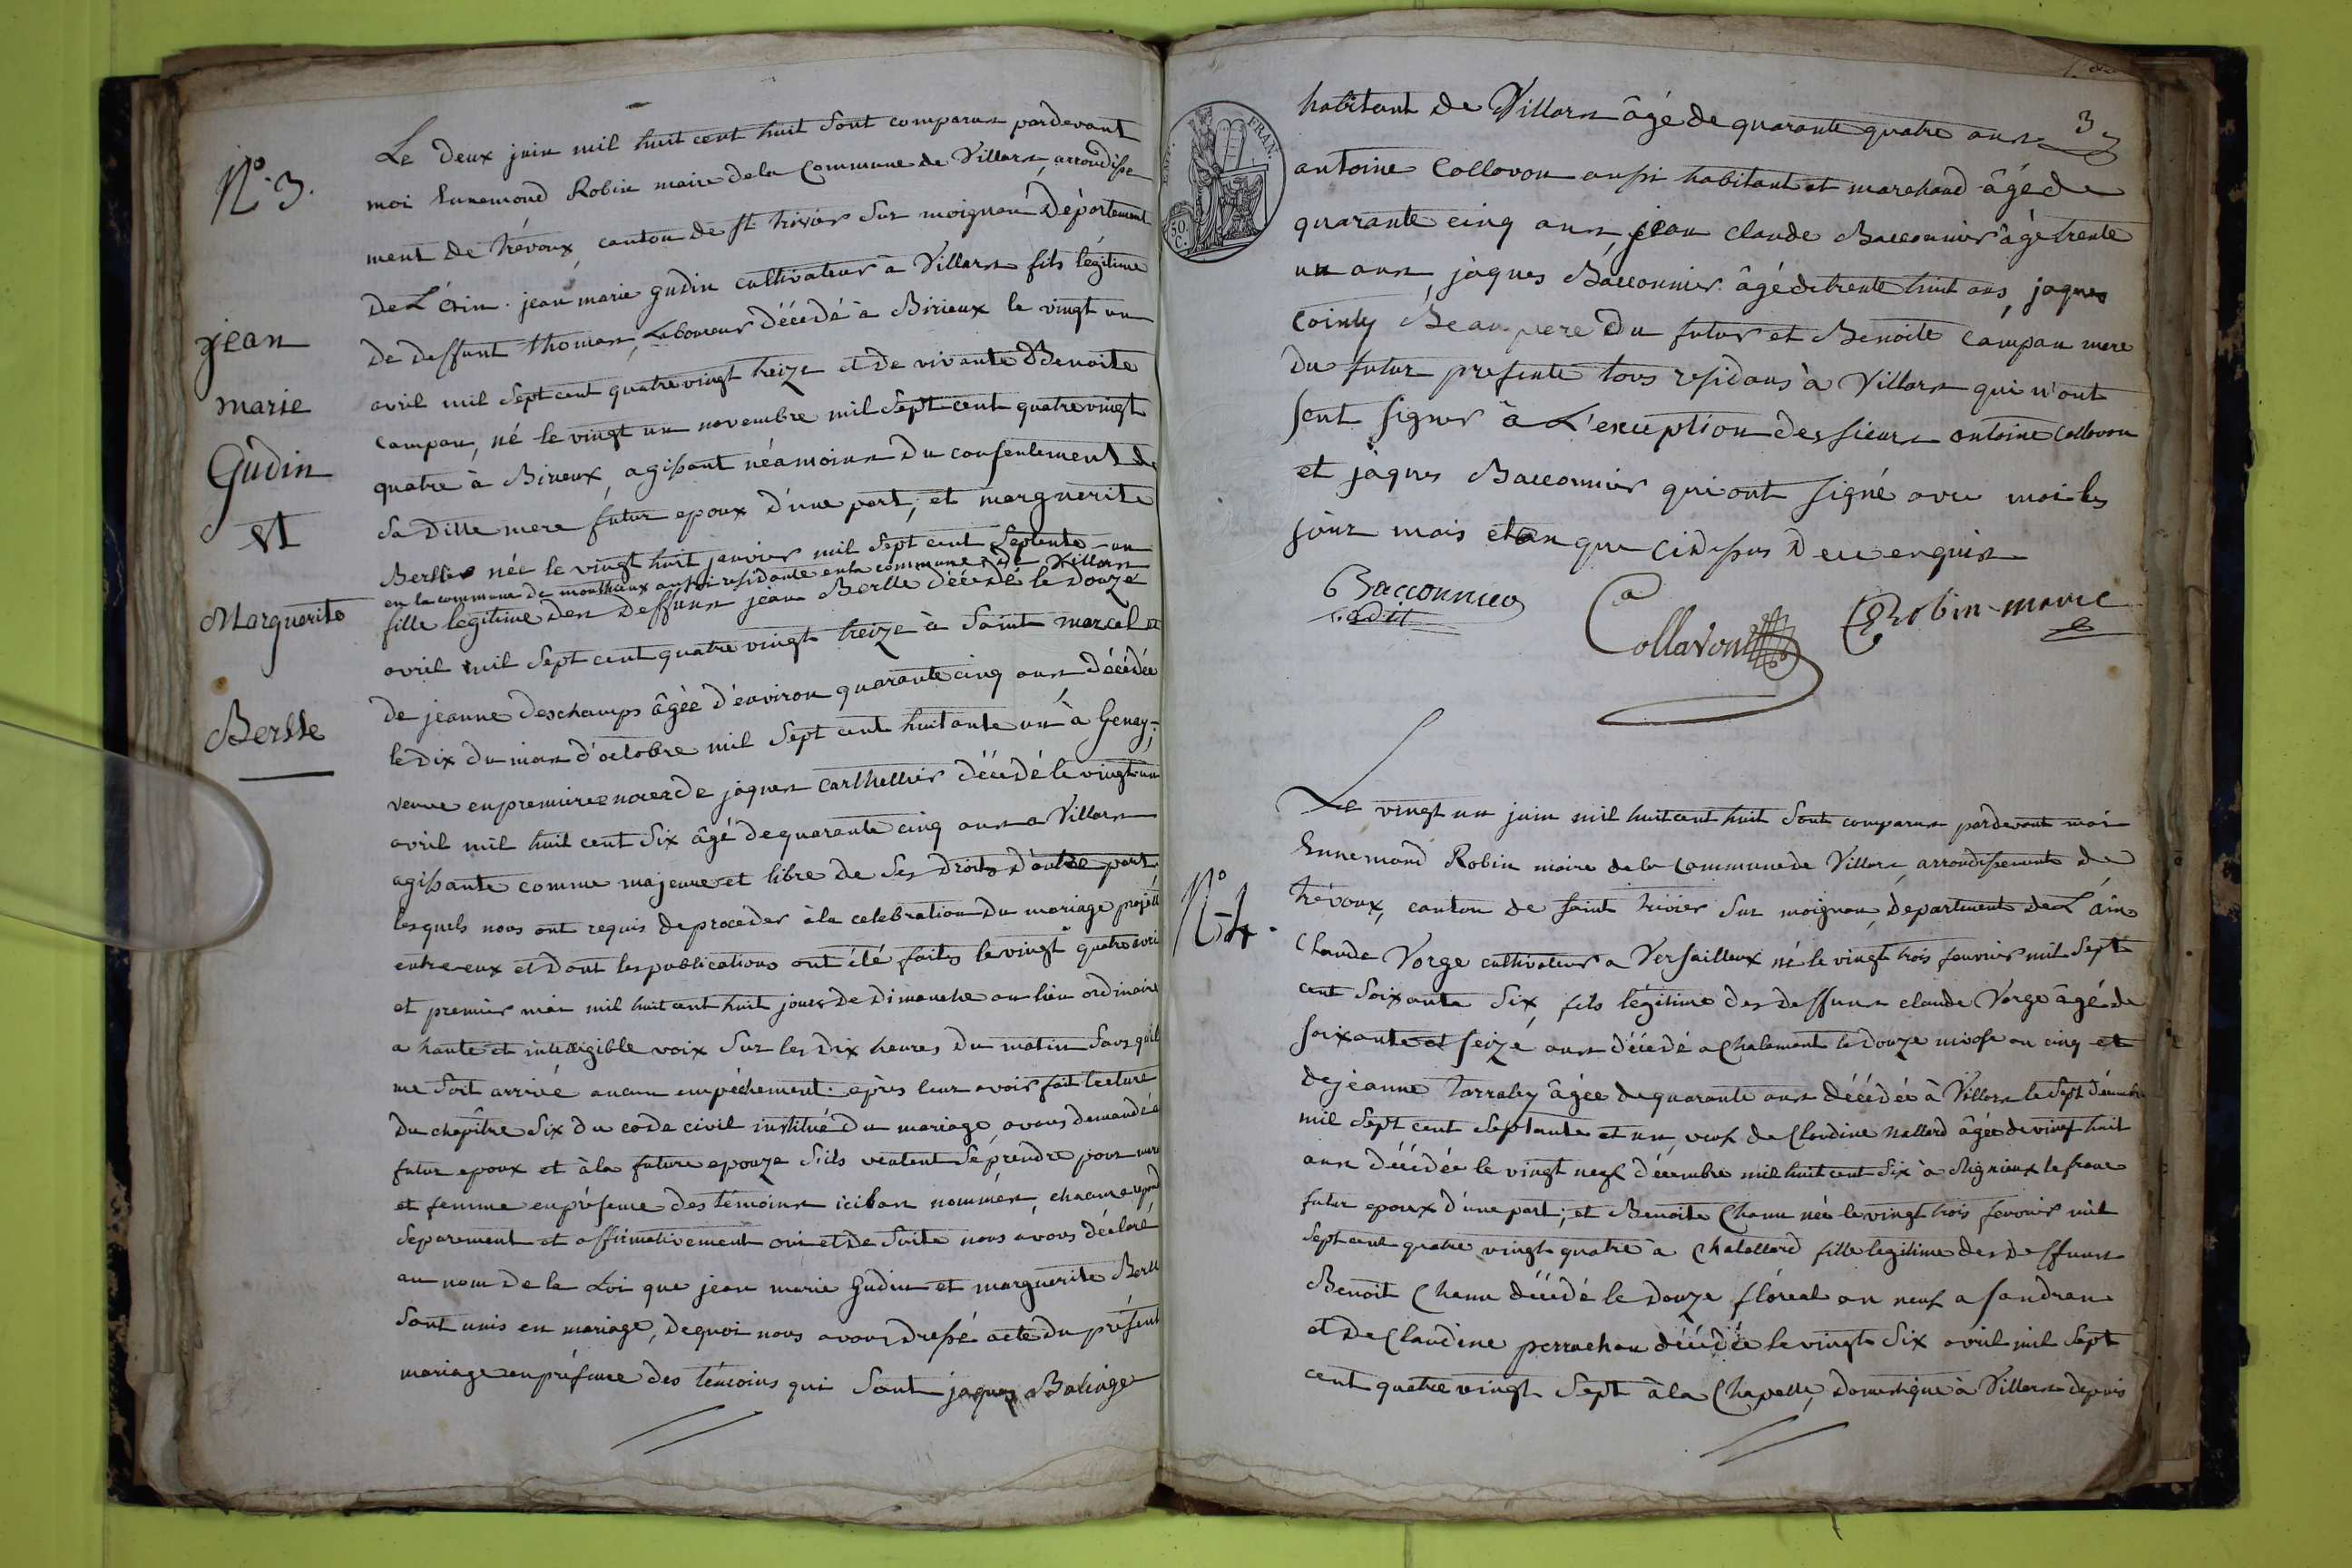 N.° 3.
jean
marie
Gudin
et
Marguerite
Berlle
Le deux juin mil huit cent huit sont comparus pardevant
moi Ennemond Robin maire de la Commune de Villars, arrondisse
ment de trévoux, canton de st trivier sur moignan Département
de L'ain. jean marie gudin cultivateur à Villars fils légitime
de deffunt thomas, Laboureur décédé à Birieux le vingt un
avril mil sept cent quatre vingt treize et de vivante Benoite
campan, né le vingt un novembre mil sept cent quatre vingt
quatre à Birieux, agissant néamoins du consentement de
sa ditte mere futur epoux d'une part; et marguerite
Berlle née le vingt huit janvier mil sept cent septente un
en la commune de monthieux aussi residante en la commune de Villars
fille legitime des deffuns jean Berlle décédé le douze
avril mil sept cent quatre vingt treize à saint marcel et
de jeanne deschamps âgée d'environ quarante cinq ans décédée
le dix du mois d'octobre mil sept cent huitante un à Genay;
veuve en premiere noces de jaques carthellier décédé le vingt un
avril mil huit cent six âgé de quarante cinq ans a Villars
agissante comme majeure et libre de ses droits d'autre part
lesquels nous ont requis de proceder à la celebration du mariage projetté
entre eux et dont les publications ont été faites le vingt quatre avri
et premier mai mil huit cent huit jours de dimanche au lieu ordinaire
a haute et intelligible voix sur les dix heures du matin sans qu'il
me soit arrivé aucun empéchement. après leur avoir fait lecture
du chapître six du code civil institué du mariage, avons demandé a
futur epoux et à la future epouze s'ils veulent se prendre pour mari
et femme en présence des témoins ici bas nommés, chacun a repond
separement et affirmativement oui et de suite nous avons déclaré
au nom de la Loi que jean marie Gudin et marguerite Berll
sont unis en mariage, de quoi nous avons dressé acte du présent
mariage en présence des témoins qui sont jaques Balinge
3
habitant de Villars âgé de quarante quatre ans
antoine Collovon aussi habitant et marchand âgé de
quarante cinq ans, jean claude Bacconnier âgé trente
un ans, jaques Bacconnier âgé de trente huit ans, jaques
Cointy Beau pere du futur et Benoite campan mere
du futur presente tous residans à Villars qui n'ont
sçut signer à L'exception des sieurs antoine Collovon
et jaques Bacconnier qui ont signé avec moi les
jour mois et an que ci dessus de ce enquis
Bacconnier
Collavon
Robin maire
FRAN.
50.
C.
N.° 4.
Le vingt un juin mil huit cent huit sont comparus pardevant moi
Ennemond Robin maire de la Commune de Villars, arrondissement de
trévoux, canton de saint trivier sur moignan, département de L'ain
Claude Vorge cultivateur a Versailleux né le vingt trois fevrier mil sept
cent soixante six, fils légitime des deffuns claude Vorge âgé de
soixante et seize ans décédé a Chalamont le douze nivose an cinq et
de jeanne tarraby âgée de quarante ans décédée à Villars le sept décembre
mil sept cent septante et un, veuf de Claudine nallard âgée de vingt huit
ans décédée le vingt neuf décembre mil huit cent six à Mignieux le franc
futur epoux d'une part; et Benoite Chanu née le vingt trois fevrier mil
sept cent quatre vingt quatre à Chatellard fille legitime des deffuns
Benoit Chanu décédé le douze floréal an neuf a sandran
et de Claudine perrachon décédée le vingt six avril mil sept
cent quatre vingt sept à la Chapelle, domestique à Villars depuis